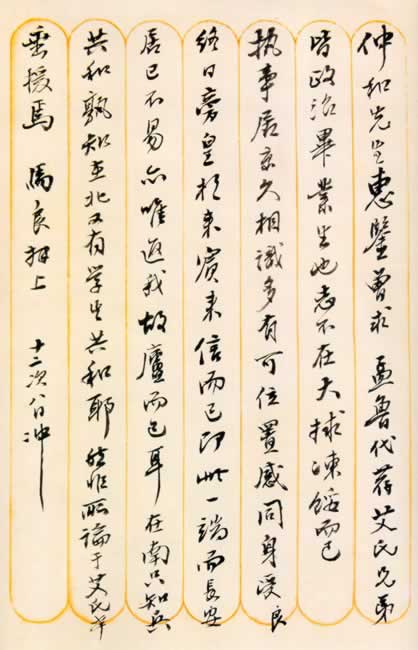 仲和先生惠鑒曾求 孟魯代荐艾氏兄弟
皆政治畢業生也志不在大捄凍餒而已
執事居京久相識多有可位置感同身受良
終日旁皇於來賓來信而已即此一端而長安
居已不易亦唯返我故廬而已耳在南只知兵
共和孰知至北又有学生共和耶然非所論于艾氏弟
垂援焉 馬良拜上 十二次八日冲